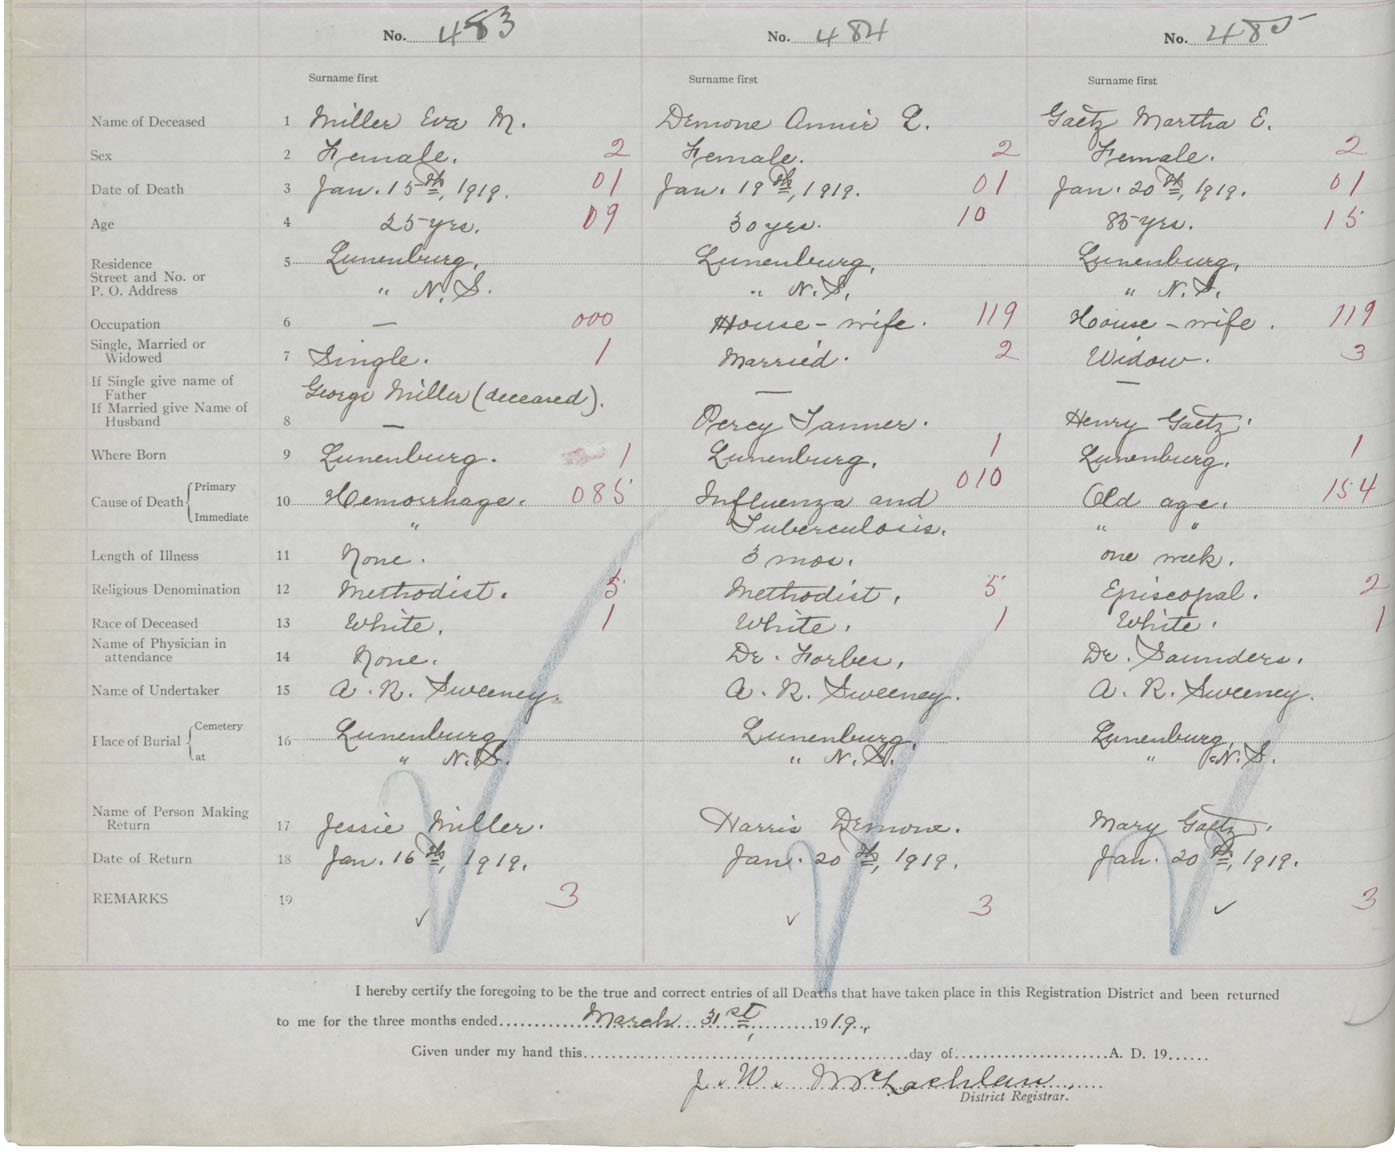 No. 483 No. 484 No. 485
Surname first Surname first Surname first
Name of Deceased 1 Miller Eva M. Demone Annie L. Gaetz Martha E.
Sex 2 Female. 2 Female. 2 Female. 2
Date of Death 3 Jan. 15th, 1919. 01 Jan. 19th, 1919. 01 Jan. 20th, 1919. 01
Age 4 25 yrs. 09 30 yrs. 10 85 yrs. 15
Residence 5 Lunenburg, Lunenburg, Lunenburg,
Street and No. or
P. O. Address " N.S. " N.S. " N.S.
Occupation 6 — 000 House-wife. 119 House-wife. 119
Single, Married or
Widowed 7 Single. 1 Married. 2 Widow. 3
If Single give name of
Father George Miller (deceased). — —
If Married give Name of
Husband 8 — Percy Tanner. Henry Gaetz.
Where Born 9 Lunenburg. 1 Lunenburg. 1 Lunenburg. 1
Cause of Death { Primary 10 Hemorrhage. 085 Influenza and 010 Old age. 154
Immediate " Tuberculosis. " "
Length of Illness 11 None. 3 mos. one week.
Religious Denomination 12 Methodist. 5 Methodist. 5 Episcopal. 2
Race of Deceased 13 White. 1 White. 1 White. 1
Name of Physician in
attendance 14 None. Dr. Forbes. Dr. Saunders.
Name of Undertaker 15 A. R. Sweeney. A. R. Sweeney. A. R. Sweeney.
Place of Burial { Cemetery 16 Lunenburg Lunenburg, Lunenburg,
at " N.S. " N.S. " N.S.
Name of Person Making
Return 17 Jessie Miller. Harris Demone. Mary Gaetz.
Date of Return 18 Jan. 16th, 1919. Jan. 20th, 1919. Jan. 20th, 1919.
REMARKS 19 ✓ 3 ✓ 3 ✓ 3
I hereby certify the foregoing to be the true and correct entries of all Deaths that have taken place in this Registration District and been returned
to me for the three months ended March 31st, 1919.
Given under my hand this day of A. D. 19
J. W. McLachlan
District Registrar.